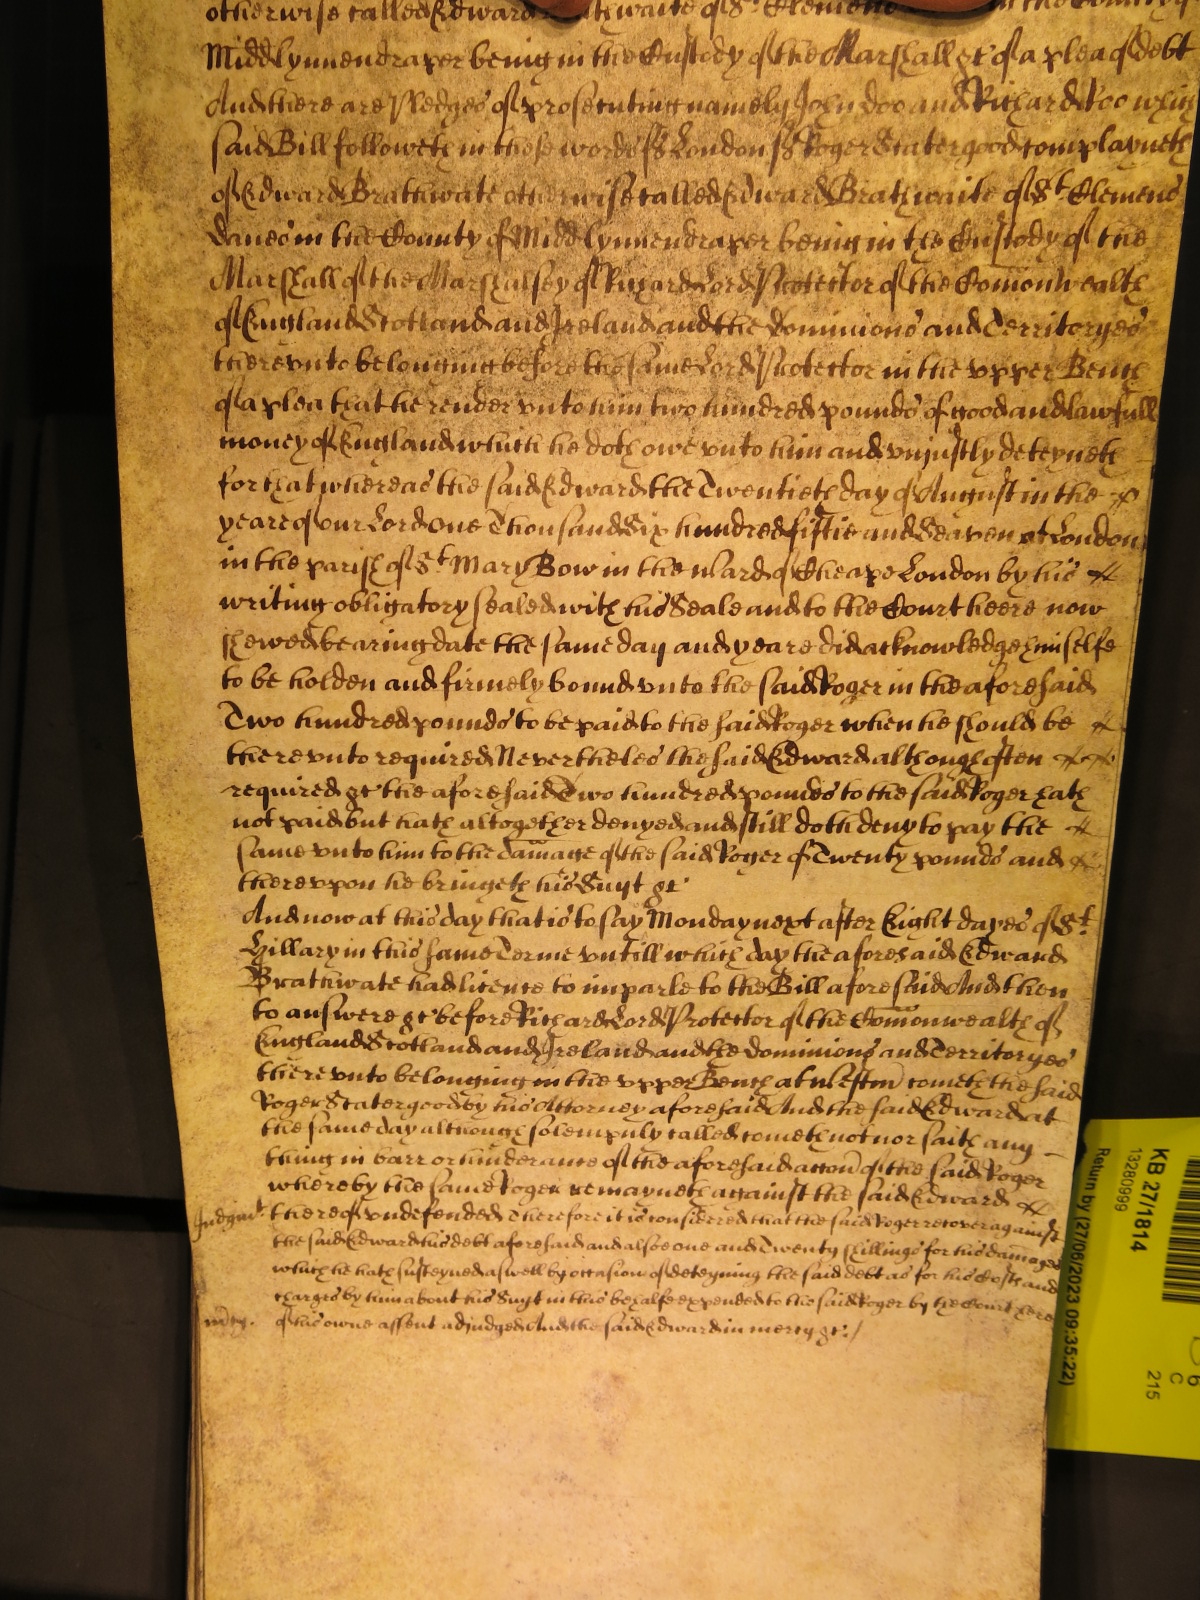 otherwise called Edward Brathwaite of St. Clements in the County of
Midd lynnendraper being in the Custody of the Marshall &c of a plea of debt
And there are Pledges of prosecuting namely John Doo and Richard Roo which
said Bill followeth in these words ss London ss Roger Statergood complayneth
of Edward Brathwate otherwise called Edward Brathwaite of St. Clement
Danes in the County of Midd lynnendraper being in the Custody of the
Marshall of the Marshalsey of Richard Lord Protector of the Comonwealth
of England Scotland and Ireland and the Dominions and Territoryes
therevnto belonging before the same Lord Protector in the vpper Bench
of a plea that he render vnto him two hundred pounds of good and lawfull
money of England which he doth owe vnto him and vniustly deteyneth
for that whereas the said Edward the Twentieth day of August in the
yeare of our Lord One Thousand Six hundred fiftie and Seaven at London
in the parish of St Mary Bow in the Ward of Cheape London by his
writing obligatory sealed with his Seale and to the Court heere now
shewed bearing date the same day and yeare did acknowledge himselfe
to be holden and firmely bound vnto the said Roger in the aforesaid
Two hundred pounds to be paid to the said Roger when he should be
therevnto required Neverthelesse the said Edward although often
required &c the aforesaid Two hundred pounds to the said Roger hath
not paid but hath altogether denyed and still doth deny to pay the
same vnto him to the damage of the said Roger of Twenty pounds and
therevpon he bringeth his Suyt &c
And now at this day that is to say Monday next after Eight dayes of St.
Hillary in this same Terme vntill which day the aforesaid Edward
Brathwate had licence to imparle to the Bill aforesaid And then
to answere &c before Richard Lord Protector of the Comonwealth of
England Scotland and Ireland and the Dominions and Territoryes
therevnto belonging in the vpper Bench at Westm cometh the said
Roger Statergood by his Attorney aforesaid And the said Edward at
the same day although solempnly called cometh not nor saith any
thing in barr or hinderance of the aforesaid accon of the said Roger
whereby the same Roger remayneth against the said Edward
Judgmt. thereof vndefended Therefore it is considered that the said Roger recover against
the said Edward his debt aforesaid and alsoe one and Twenty shillings for his damages
which he hath susteyned aswell by occasion of deteyning the said debt as for his Costs and
charges by him about his Suyt in this behalfe expended to the said Roger by the Court here
mcy. of his owne assent adjudged And the said Edward in mercy &c:/
KB 27/1814
13280999
Return by (27/06/2023 09:35:22)
6
C
215